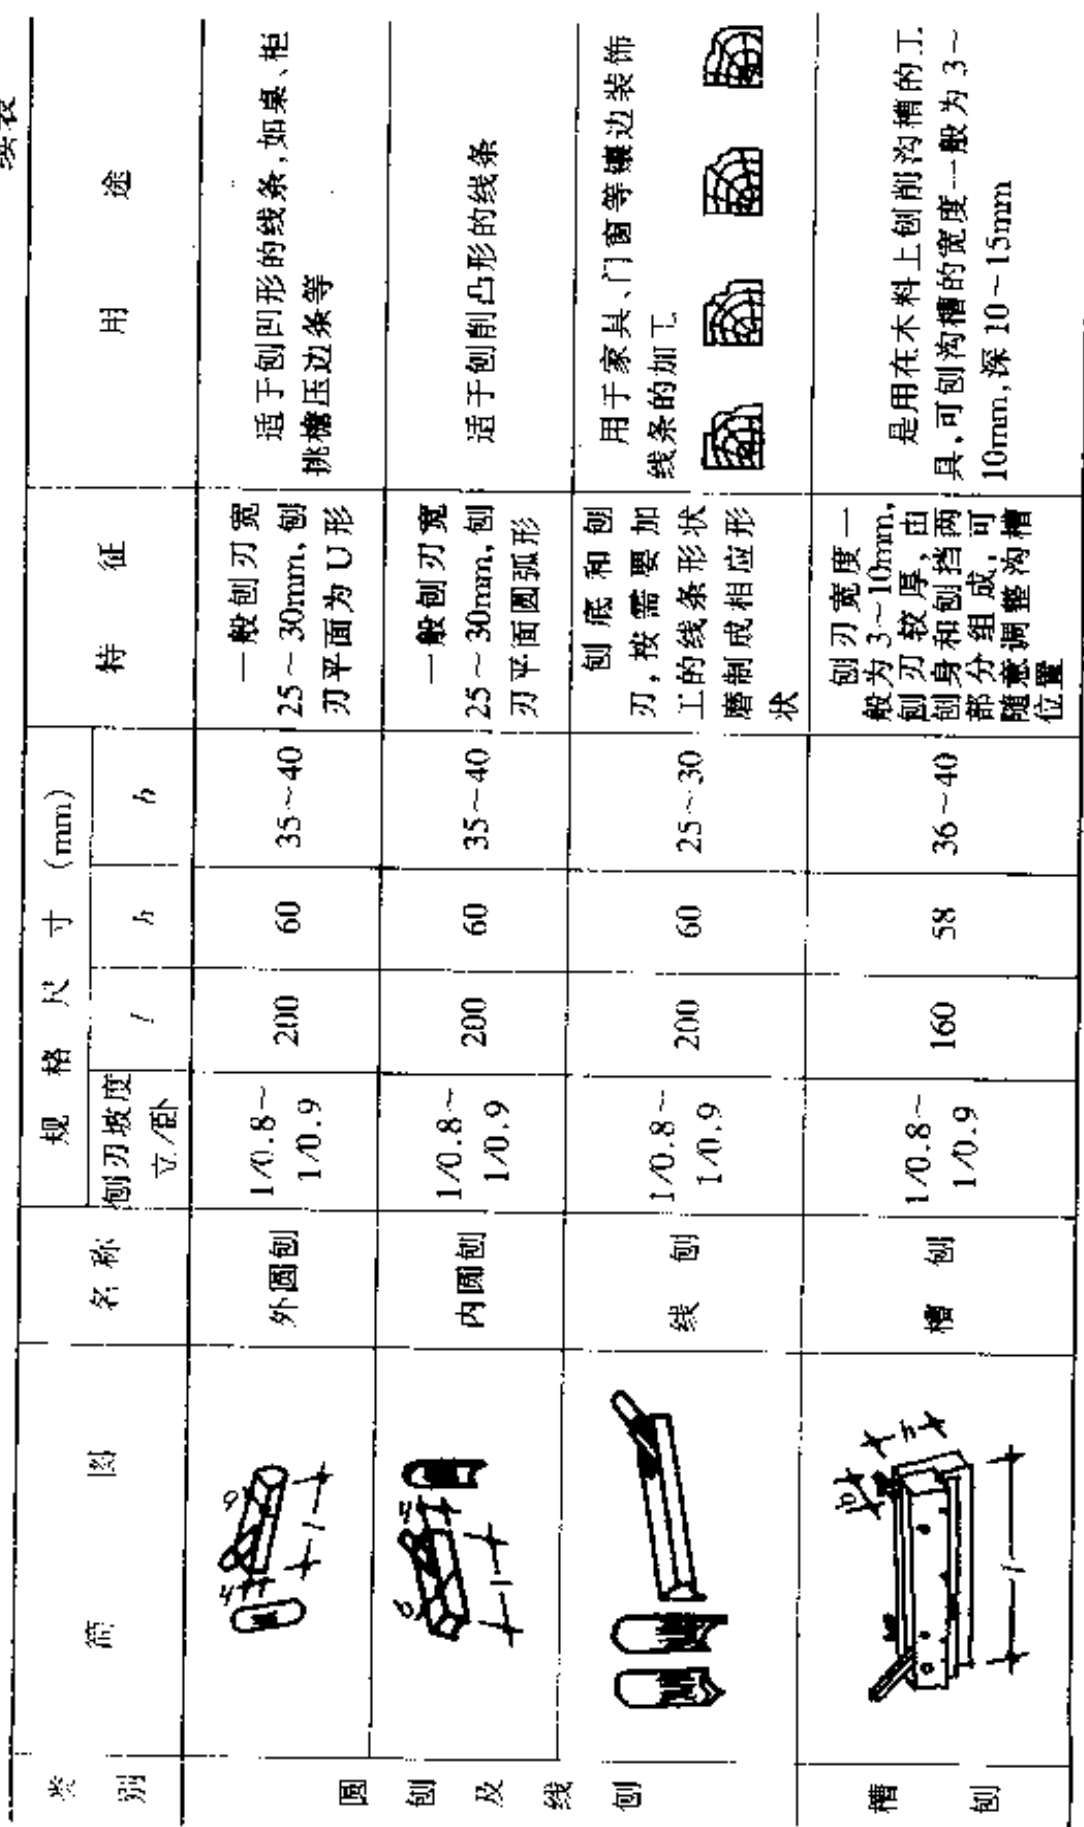 续表
类别
简图
名称
规格尺寸(mm)
刨刃坡度
立/卧
l
h
b
特征
用途
圆刨及线刨
外圆刨
1/0.8~
1/0.9
200
60
35~40
一般刨刃宽
25~30mm,刨
刃平面为U形
适于刨凹形的线条,如桌、柜
挑檐压边条等
内圆刨
1/0.8~
1/0.9
200
60
35~40
一般刨刃宽
25~30mm,刨
刃平面圆弧形
适于刨削凸形的线条
线刨
1/0.8~
1/0.9
200
60
25~30
刨底和刨
刃,按需要加
工的线条形状
磨制成相应形
状
用于家具、门窗等镶边装饰
线条的加工
槽刨
槽刨
1/0.8~
1/0.9
160
58
36~40
刨刃宽度一
般为3~10mm,
刨刃较厚,由
刨身和刨挡两
部分组成,可
随意调整沟槽
位置
是用在木料上刨削沟槽的工
具,可刨沟槽的宽度一般为3~
10mm,深10~15mm
b
l
h
b
l
b
h
l